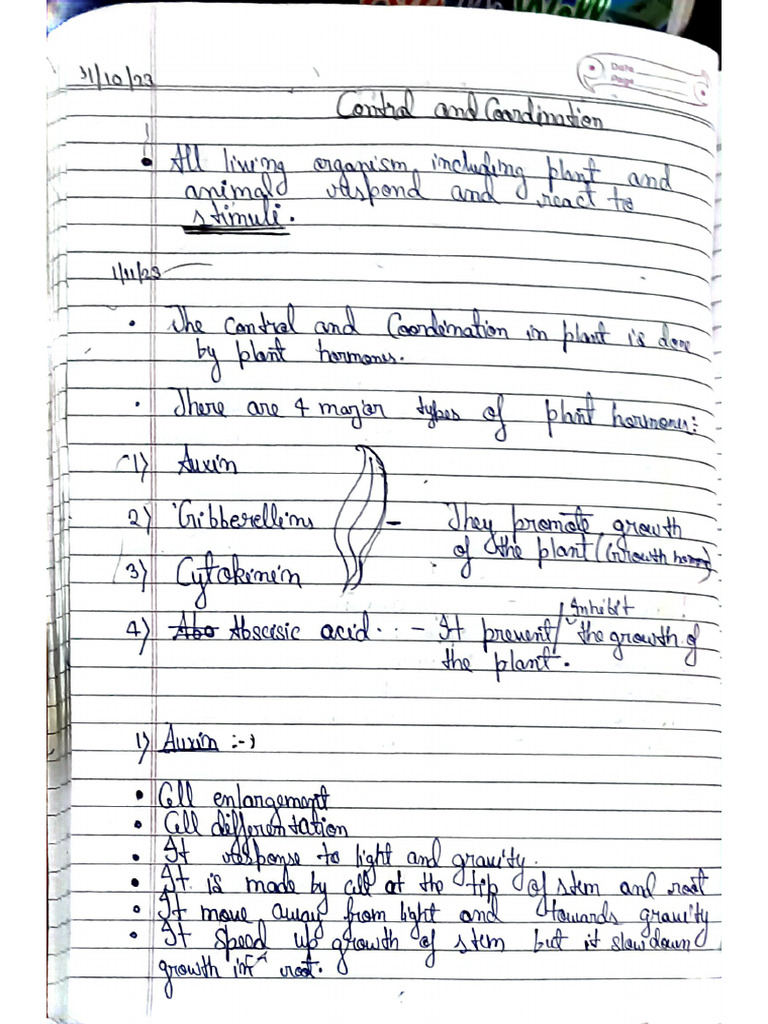 31/10/23
Date
Page
Control and Coordination
• All living organism including plant and
animal respond and react to
stimuli.
1/11/23
• The control and Coordination in plant is done
by plant hormones.
• There are 4 major types of plant hormones:
1) Auxin
2) Gibberellins - They promote growth
of the plant (Growth hormone)
3) Cytokinin
4) Abo Abscisic acid.. - It prevent/Inhibit the growth of
the plant.
1) Auxin :-)
• Cell enlargement
• Cell differentation
• It response to light and gravity.
• It is made by cell at the tip of stem and root
• It move away from light and towards gravity
• It speed up growth of stem but it slow down
growth in root.